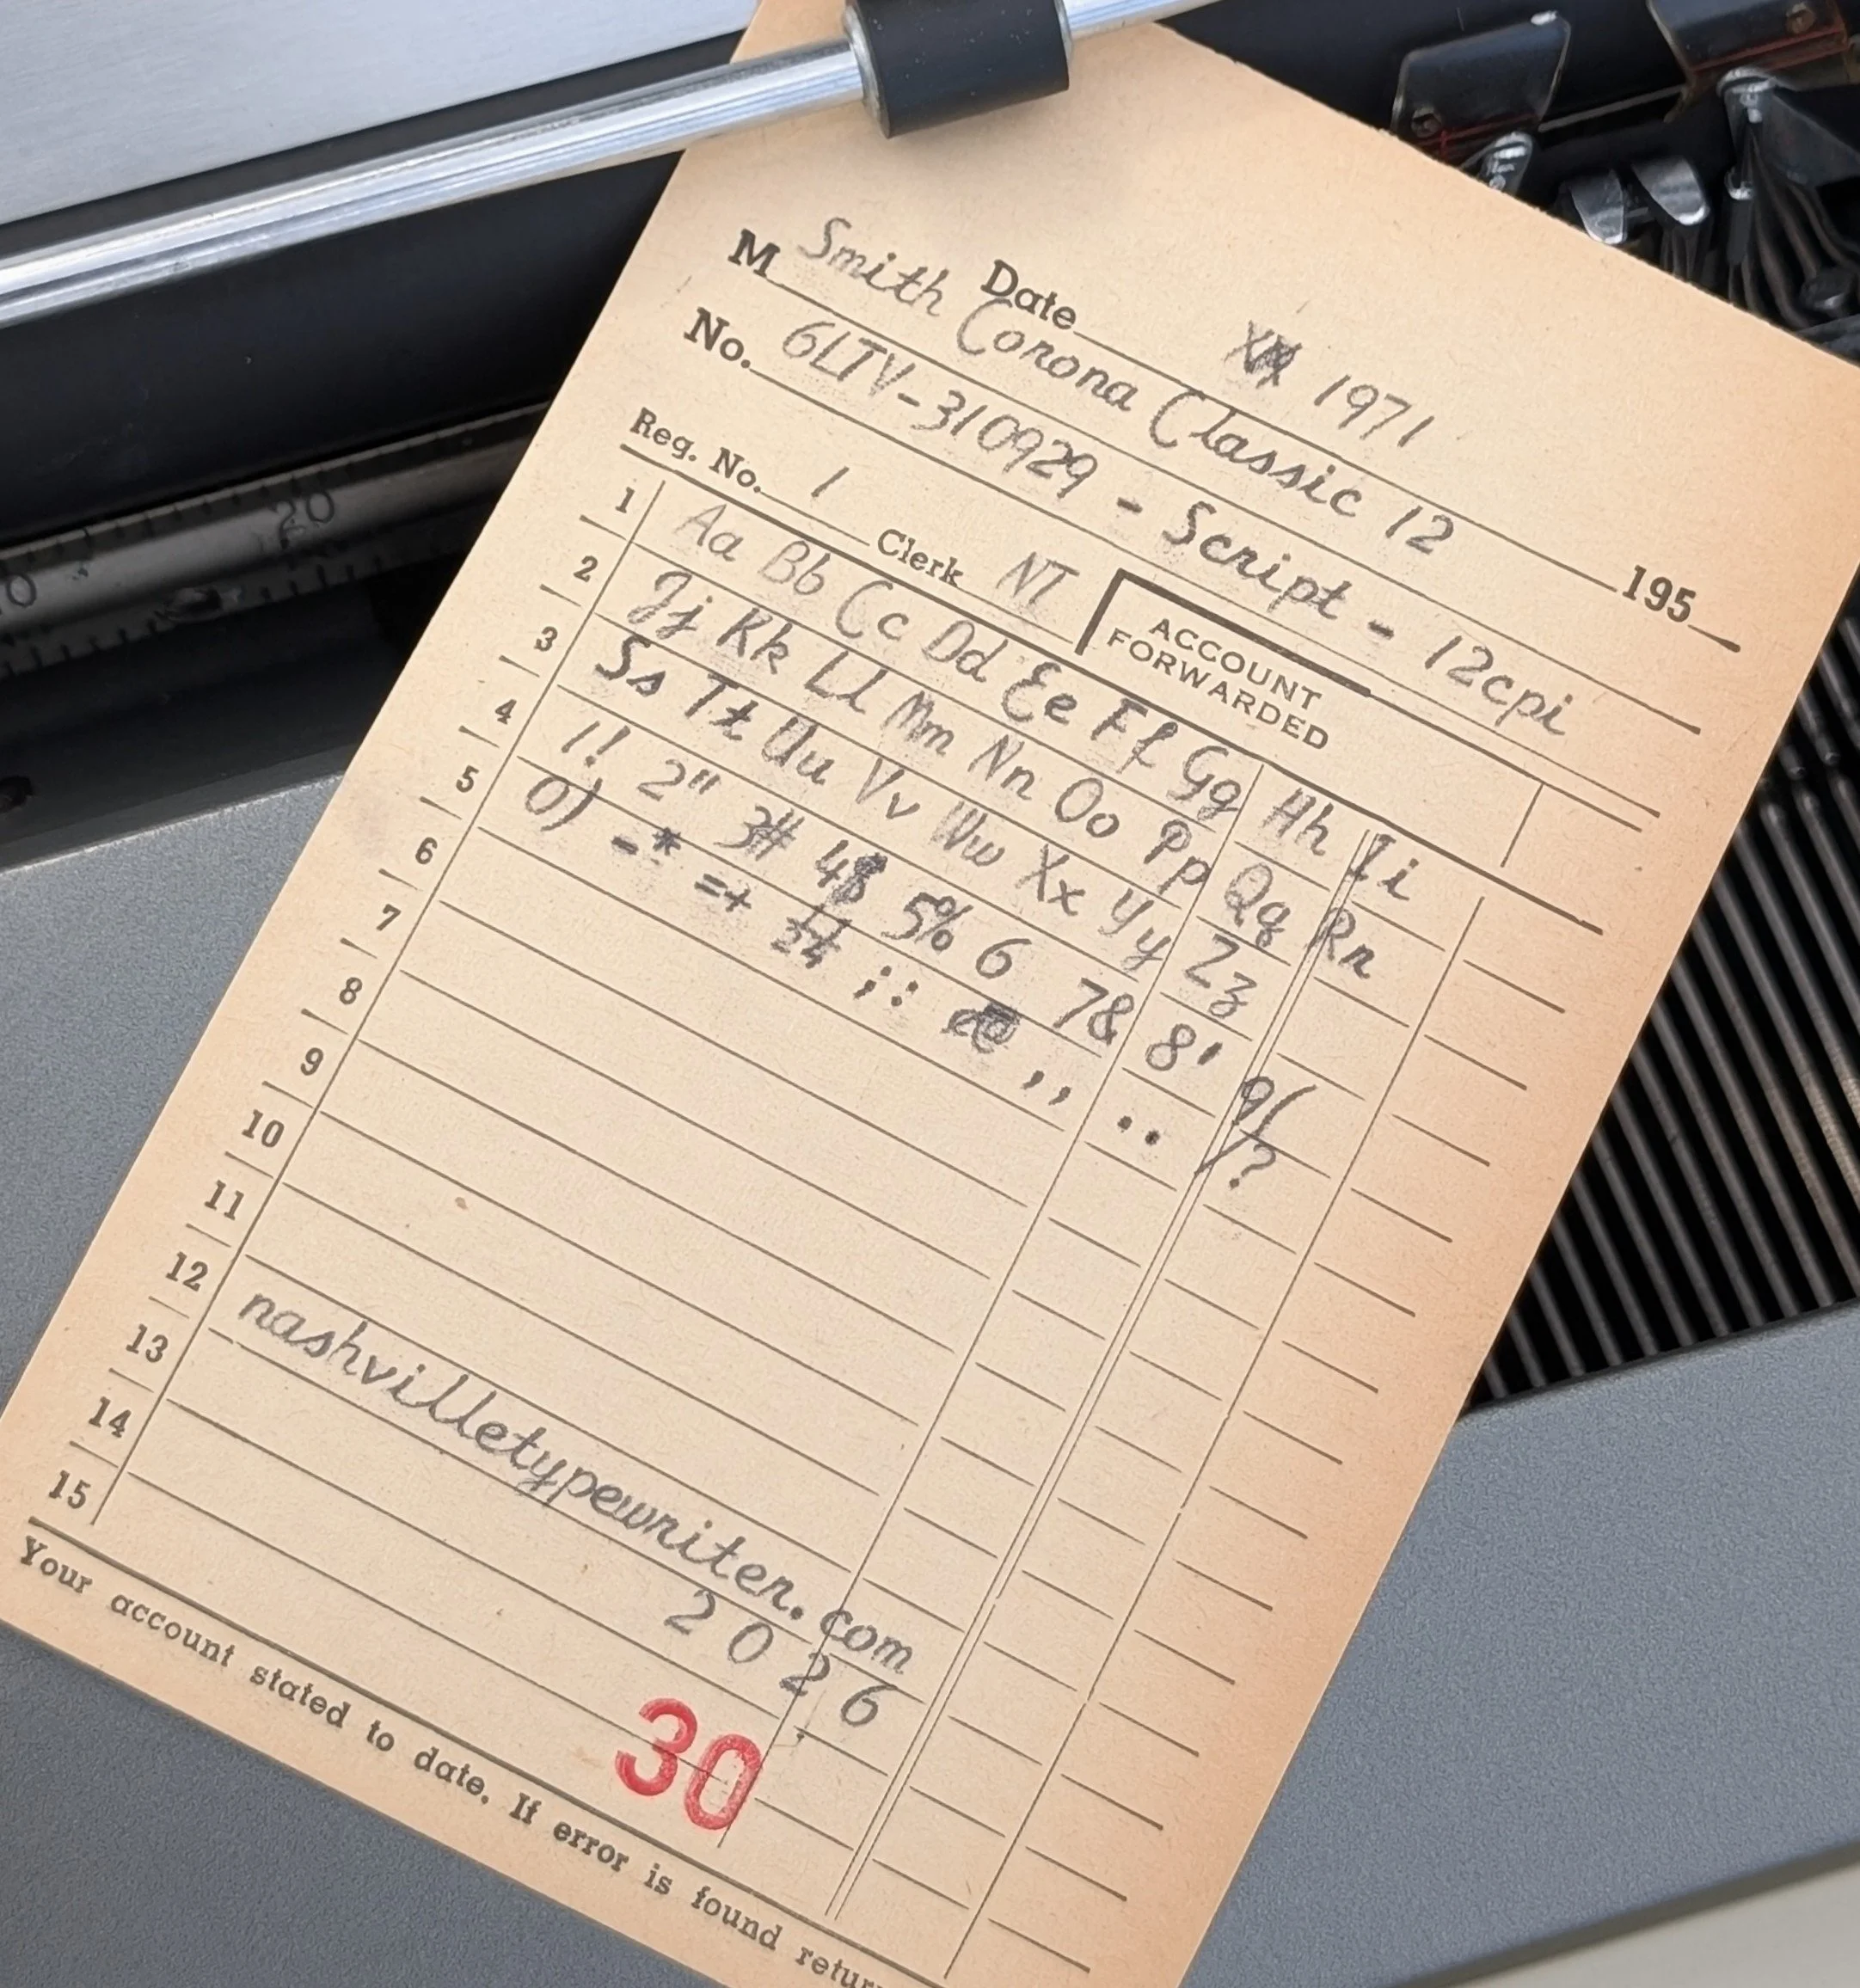 Date XX 1971 195
M Smith Corona Classic 12
No. 6LTV-310929 - Script - 12cpi
Reg. No. 1 Clerk NT ACCOUNT
FORWARDED
1 Aa Bb Cc Dd Ee Ff Gg Hh Ii
2 Jj Kk Ll Mm Nn Oo Pp Qq Rr
3 Ss Tt Uu Vv Ww Xx Yy Zz
4 1! 2" 3# 4$ 5% 6 7& 8' 9(
5 0) -* =+ ½¼ ;: ,, .. /?
6
7
8
9
10
11
12 nashvilletypewriter.com
13 2026
14
15
30
Your account stated to date. If error is found return
20